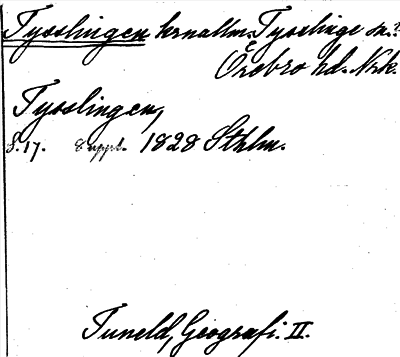 Tysslingen krnallm. Tysslinge sn.
Örebro hd. Nrk.
Tysslingen,
S. 17. 8 uppl. 1828 Sthlm.
Tuneld, Geografi. II.